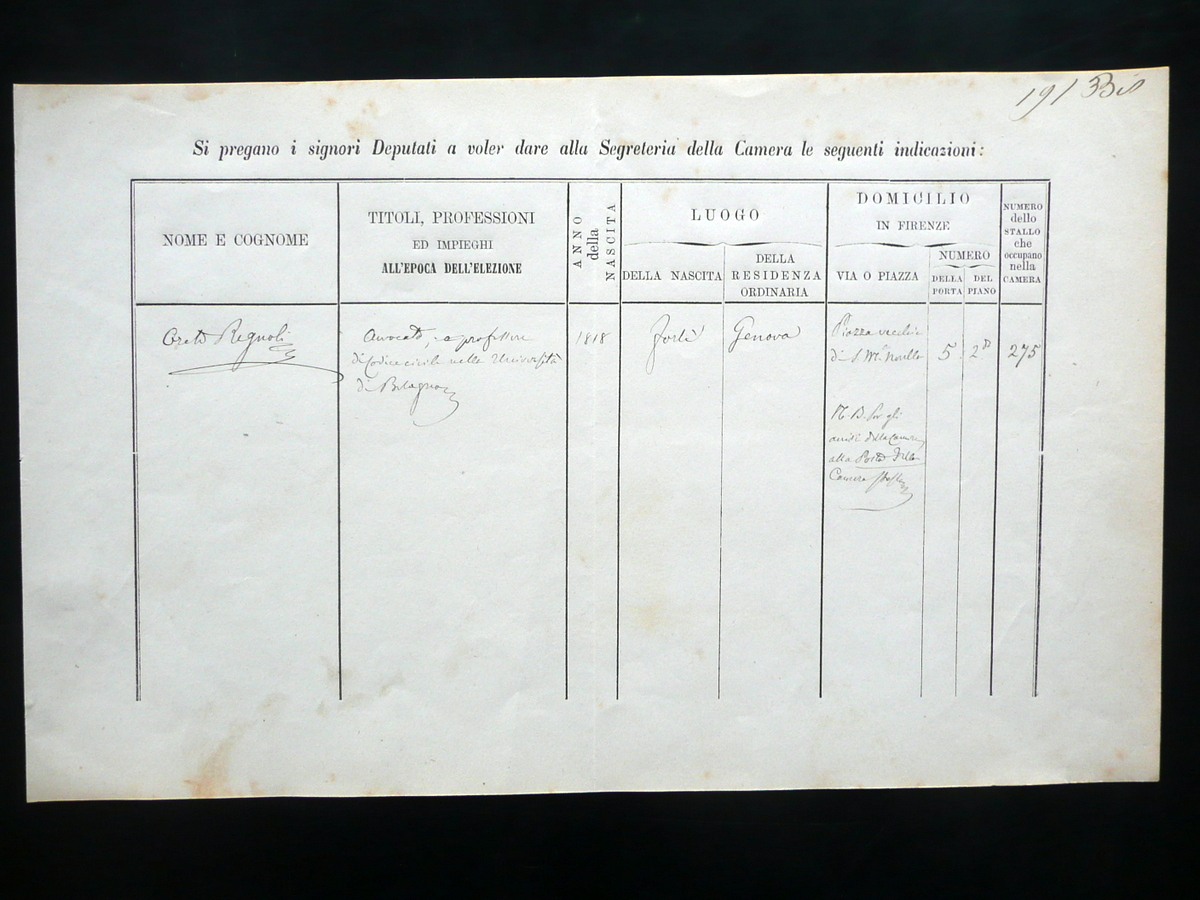 191 Bis
Si pregano i signori Deputati a voler dare alla Segreteria della Camera le seguenti indicazioni:
NOME E COGNOME
TITOLI, PROFESSIONI
ED IMPIEGHI
ALL'EPOCA DELL'ELEZIONE
ANNO
della
NASCITA
LUOGO
DELLA NASCITA
DELLA
RESIDENZA
ORDINARIA
DOMICILIO
IN FIRENZE
VIA O PIAZZA
NUMERO
DELLA
PORTA
DEL
PIANO
NUMERO
dello
STALLO
che
occupano
nella
CAMERA
Oreste Regnoli
Avvocato, e professore
di Codice civile nella Università
di Bologna
1818
Forlì
Genova
Piazza vecchia
di S. Mª Novella
5
2º
275
N. B. Per gli
avvisi della Camera
alla Posta della
Camera stessa